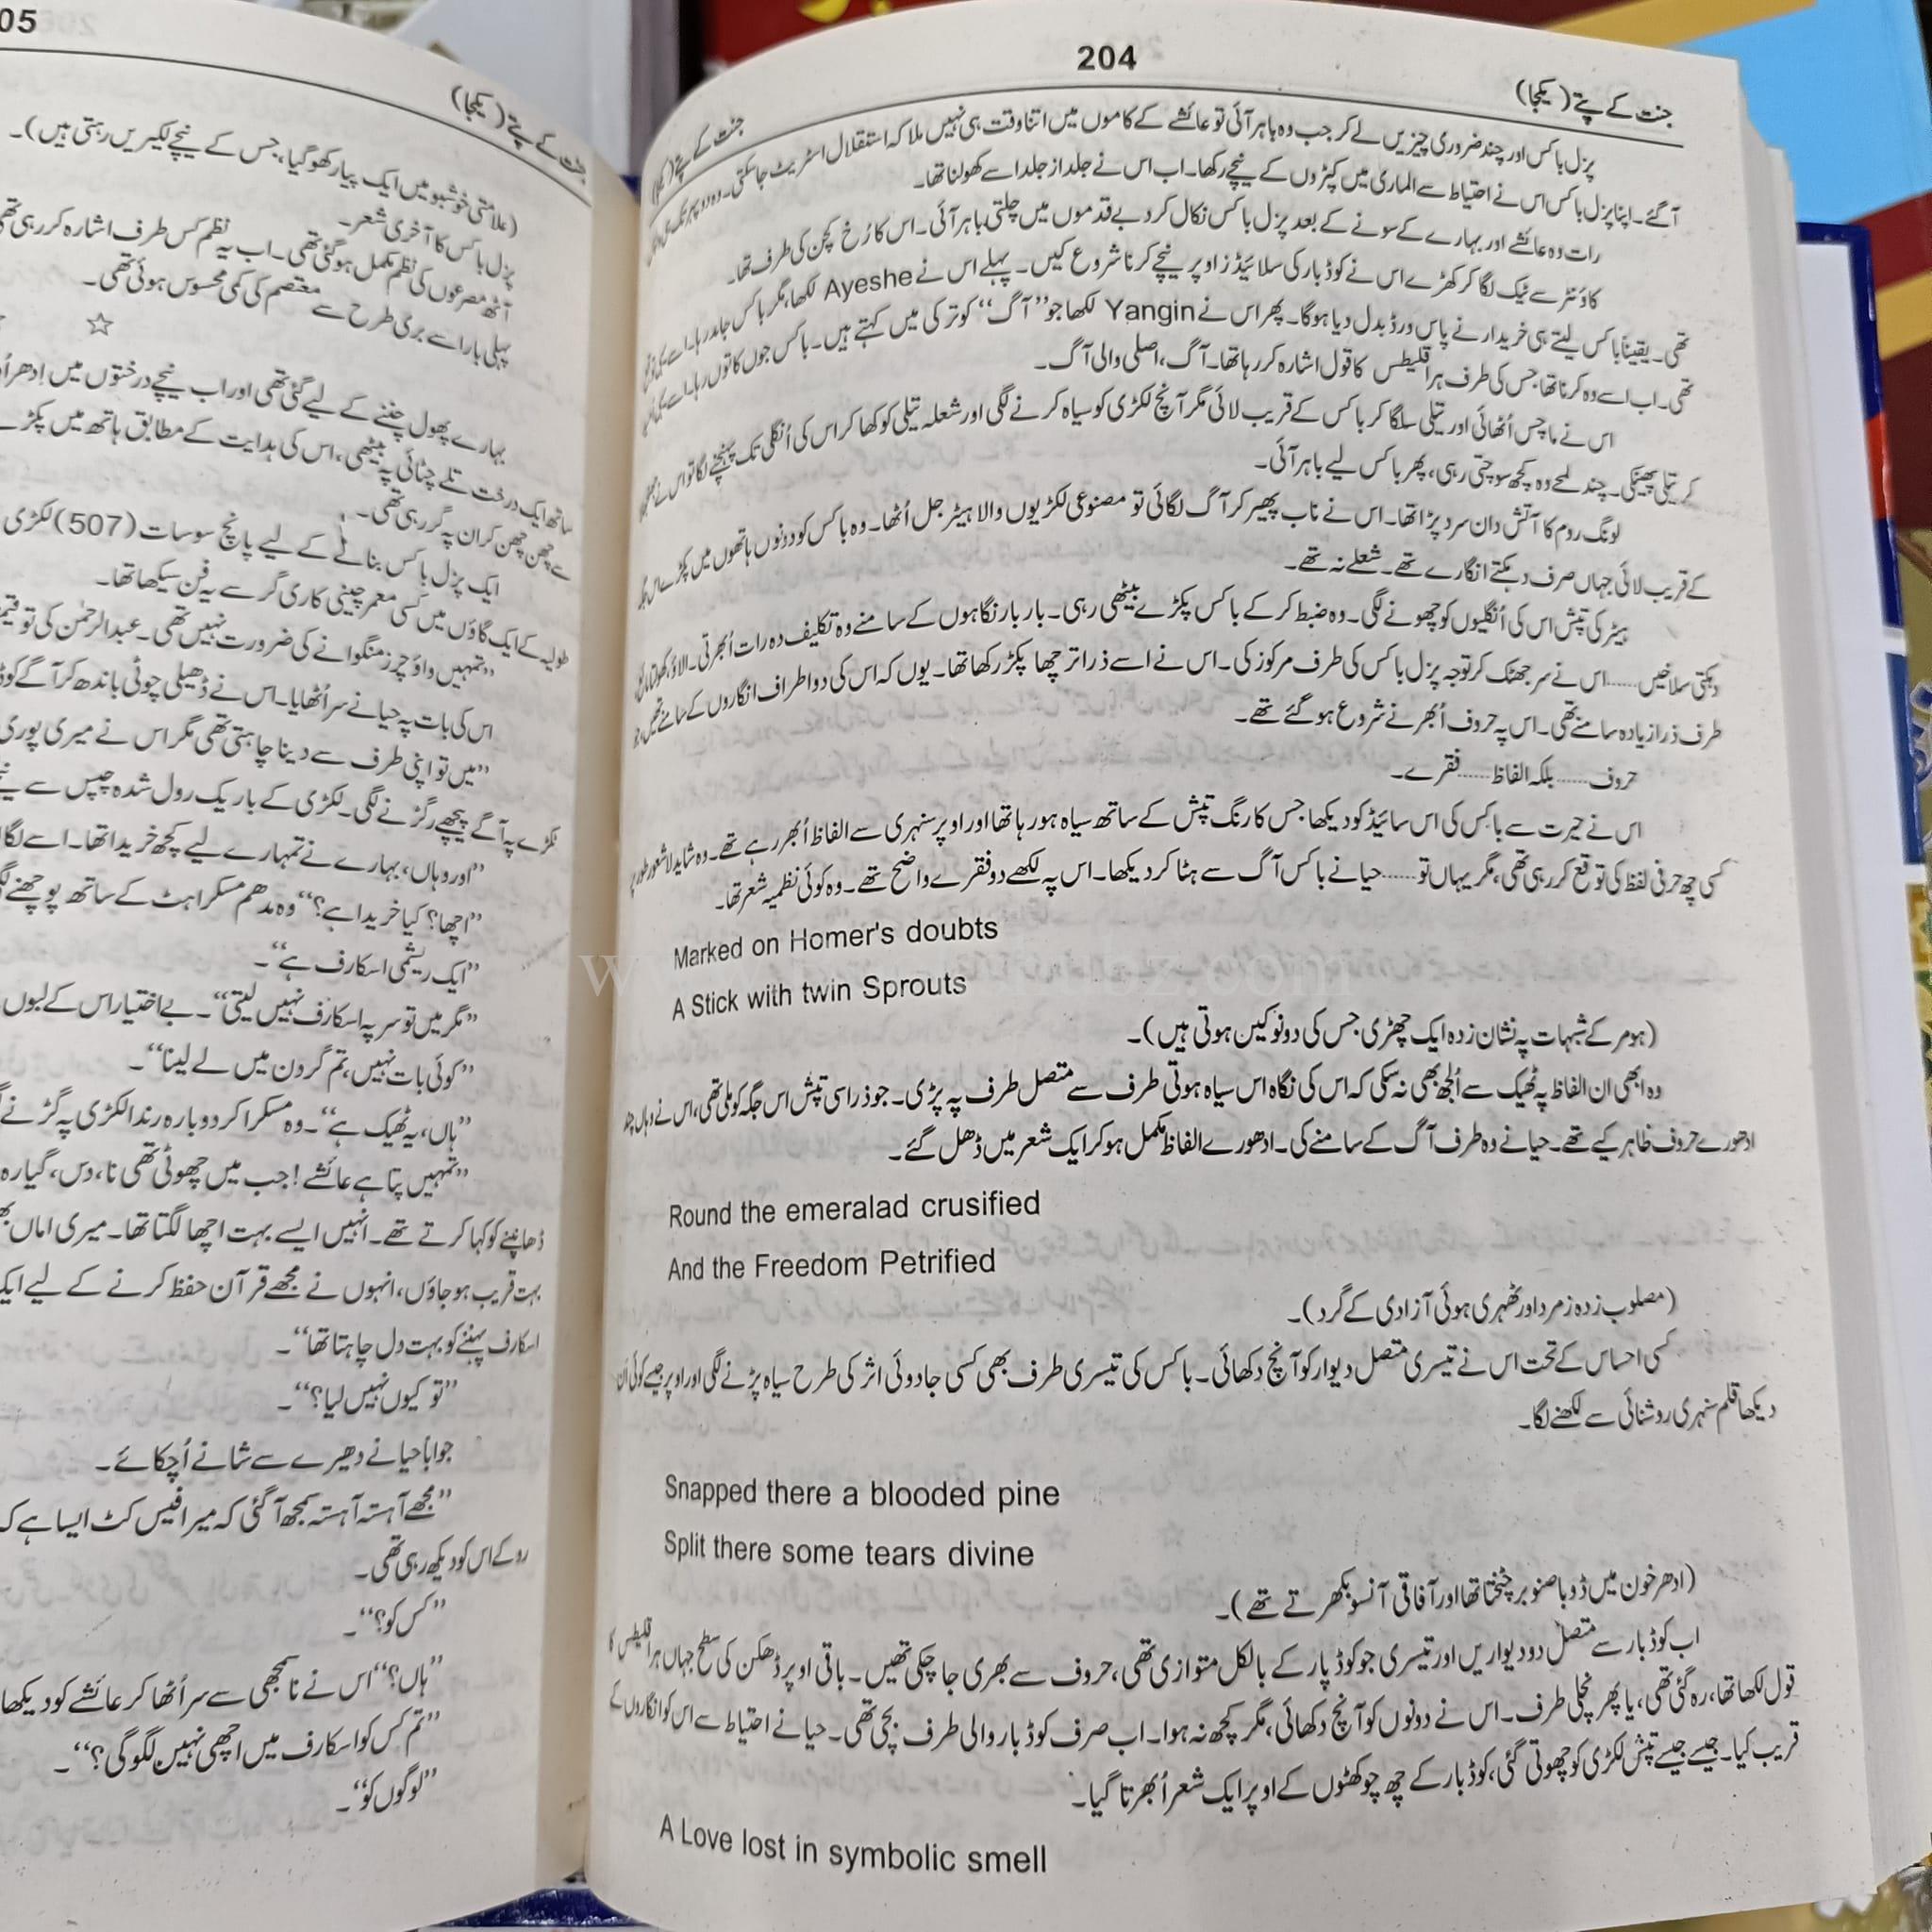 204
جنت کے پتے (یکجا)
پزل باکس اور چند ضروری چیزیں لے کر جب وہ باہر آئی تو عائشے کے کاموں میں اتنا وقت ہی نہیں ملا کہ استقلال اسٹریٹ جا سکتی۔ وہ دوپہر تک
آ گئے۔ اپنا پزل باکس اس نے احتیاط سے الماری میں کپڑوں کے نیچے رکھا۔ اب اس نے جلد از جلد اسے کھولنا تھا۔
رات وہ عائشے اور بہارے کے سونے کے بعد پزل باکس نکال کر دبے قدموں میں چلتی باہر آئی۔ اس کا رُخ کچن کی طرف تھا۔
کاؤنٹر سے ٹیک لگا کر کھڑے اس نے کوڈ بار کی سلائیڈز اوپر نیچے کرنا شروع کیں۔ پہلے اس نے Ayeshe لکھا، مگر باکس جامد رہا۔ اسے یہی توقع
تھی۔ یقیناً باکس لیتے ہی خریدار نے پاس ورڈ بدل دیا ہوگا۔ پھر اس نے Yangin لکھا جو ”آگ“ کو ترکی میں کہتے ہیں۔ باکس جوں کا توں رہا۔ اسے یہی
تھی۔ اب اسے وہ کرنا تھا جس کی طرف ہراقلیطس کا قول اشارہ کر رہا تھا۔ آگ، اصلی والی آگ۔
اس نے ماچس اُٹھائی اور تیلی سلگا کر باکس کے قریب لائی مگر آنچ لکڑی کو سیاہ کرنے لگی اور شعلہ تیلی کو کھا کر اس کی اُنگلی تک پہنچنے لگا تو اس نے
کر تیلی پھینکی۔ چند لمحے وہ کچھ سوچتی رہی، پھر باکس لیے باہر آئی۔
لونگ روم کا آتش دان سرد پڑا تھا۔ اس نے ناب پھیر کر آگ لگائی تو مصنوعی لکڑیوں والا ہیٹر جل اُٹھا۔ وہ باکس کو دونوں ہاتھوں میں پکڑے اس جگہ
کے قریب لائی جہاں صرف دہکتے انگارے تھے۔ شعلے نہ تھے۔
ہیٹر کی تپش اس کی اُنگلیوں کو چھونے لگی۔ وہ ضبط کر کے باکس پکڑے بیٹھی رہی۔ بار بار نگاہوں کے سامنے وہ تکلیف دہ رات اُبھرتی۔ الاؤ، کھولتا
دہکتی سلاخیں......اس نے سر جھٹک کر توجہ پزل باکس کی طرف مرکوز کی۔ اس نے اسے ذرا ترچھا پکڑ رکھا تھا۔ یوں کہ اس کی دو اطراف انگاروں کے سامنے تھیں،
طرف ذرا زیادہ سامنے تھی۔ اس پہ حروف اُبھرنے شروع ہو گئے تھے۔
حروف......بلکہ الفاظ......فقرے۔
اس نے حیرت سے باکس کی اس سائیڈ کو دیکھا جس کا رنگ تپش کے ساتھ سیاہ ہو رہا تھا اور اوپر سنہری سے الفاظ اُبھر رہے تھے۔ وہ شاید لاشعور طور پر
کسی چھ حرفی لفظ کی توقع کر رہی تھی، مگر یہاں تو......حیا نے باکس آگ سے ہٹا کر دیکھا۔ اس پہ لکھے دو فقرے واضح تھے۔ وہ کوئی نظمیہ شعر تھا۔
Marked on Homer's doubts
A Stick with twin Sprouts
(ہومر کے شبہات پہ نشان زدہ ایک چھڑی جس کی دو نوکیں ہوتی ہیں)۔
وہ ابھی ان الفاظ پہ ٹھیک سے اُلجھ بھی نہ سکی کہ اس کی نگاہ اس سیاہ ہوتی طرف سے متصل طرف پہ پڑی۔ جو ذرا سی تپش اس جگہ کو ملی تھی، اس نے وہاں چند
ادھورے حروف ظاہر کیے تھے۔ حیا نے وہ طرف آگ کے سامنے کی۔ ادھورے الفاظ مکمل ہو کر ایک شعر میں ڈھل گئے۔
Round the emeralad crusified
And the Freedom Petrified
(مصلوب زدہ زمرد اور ٹھہری ہوئی آزادی کے گرد)۔
کسی احساس کے تحت اس نے تیسری متصل دیوار کو آنچ دکھائی۔ باکس کی تیسری طرف بھی کسی جادوئی اثر کی طرح سیاہ پڑنے لگی اور اوپر جیسے کوئی اَن
دیکھا قلم سنہری روشنائی سے لکھنے لگا۔
Snapped there a blooded pine
Split there some tears divine
(ادھر خون میں ڈوبا صنوبر چٹختا تھا اور آفاقی آنسو بکھرتے تھے)۔
اب کوڈ بار سے متصل دو دیواریں اور تیسری جو کوڈ بار کے بالکل متوازی تھی، حروف سے بھری جا چکی تھیں۔ باقی اوپر ڈھکن کی سطح جہاں ہراقلیطس کا
قول لکھا تھا، رہ گئی تھی، یا پھر نچلی طرف۔ اس نے دونوں کو آنچ دکھائی، مگر کچھ نہ ہوا۔ اب صرف کوڈ بار والی طرف بچی تھی۔ حیا نے احتیاط سے اس کو انگاروں کے
قریب کیا۔ جیسے جیسے تپش لکڑی کو چھوتی گئی، کوڈ بار کے چھ چوکھٹوں کے اوپر ایک شعر اُبھرتا گیا۔
A Love lost in symbolic smell
05
جنت کے پتے (یکجا)
(علامتی خوشبو میں ایک پیار کھو گیا، جس کے نیچے لکیریں رہتی ہیں)۔
پزل باکس کا آخری شعر۔
آٹھ مصرعوں کی نظم مکمل ہو گئی تھی۔ اب یہ نظم کس طرف اشارہ کر رہی تھی
پہلی بار اسے بری طرح سے معتصم کی کمی محسوس ہوئی تھی۔
☆
بہارے پھول چننے کے لیے گئی تھی اور اب نیچے درختوں میں اِدھر
ساتھ ایک درخت تلے چٹائی پہ بیٹھی، اس کی ہدایت کے مطابق ہاتھ میں پکڑے
سے چھن چھن کر ان پہ گر رہی تھی۔
ایک پزل باکس بنانے کے لیے پانچ سو سات (507) لکڑی
طولیہ کے ایک گاؤں میں کسی معمر چینی کاری گر سے یہ فن سیکھا تھا۔
”تمہیں واؤچرز منگوانے کی ضرورت نہیں تھی۔ عبدالرحمٰن کی تو
اس کی بات پہ حیا نے سر اُٹھایا۔ اس نے ڈھیلی چوٹی باندھ کر آگے کو
”میں تو اپنی طرف سے دینا چاہتی تھی مگر اس نے میری پوری
ٹکڑے پہ آگے پیچھے رگڑنے لگی۔ لکڑی کے باریک رول شدہ چپس سے
”اور وہاں، بہارے نے تمہارے لیے کچھ خریدا تھا۔ اسے لگا
”اچھا؟ کیا خریدا ہے؟“ وہ مدھم مسکراہٹ کے ساتھ پوچھنے
”ایک ریشمی اسکارف ہے“۔
”مگر میں تو سر پہ اسکارف نہیں لیتی“۔ بے اختیار اس کے لبوں
”کوئی بات نہیں، تم گردن میں لے لینا“۔
”ہاں، یہ ٹھیک ہے“۔ وہ مسکرا کر دوبارہ رندا لکڑی پہ
”تمہیں پتا ہے عائشے! جب میں چھوٹی تھی نا، دس، گیارہ
ڈھانپنے کو کہا کرتے تھے۔ انہیں ایسے بہت اچھا لگتا تھا۔ میری اماں
بہت قریب ہو جاؤں، انہوں نے مجھے قرآن حفظ کرنے کے لیے
اسکارف پہننے کو بہت دل چاہتا تھا“۔
”تو کیوں نہیں لیا؟“۔
جواباً حیا نے دھیرے سے شانے اُچکائے۔
”مجھے آہستہ آہستہ سمجھ آ گئی کہ میرا فیس کٹ ایسا ہے کہ
روکے اس کو دیکھ رہی تھی۔
”کس کو؟“۔
”ہاں؟“ اس نے ناسمجھی سے سر اُٹھا کر عائشے کو دیکھا
”تم کس کو اسکارف میں اچھی نہیں لگو گی؟“۔
”لوگوں کو“۔